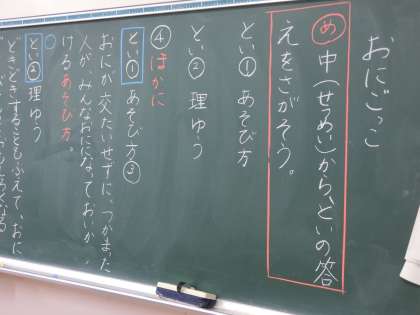 おにごっこ
め 中(せつめい)から、といの答
えをさがそう。
とい① あそび方
とい② 理ゆう
④ほかに
とい① あそび方③
おにが交たいせずに、つかまった
人が、みんなおにになっておいか
けるあそび方。
とい② 理ゆう
どきどきすることもふえて、おに